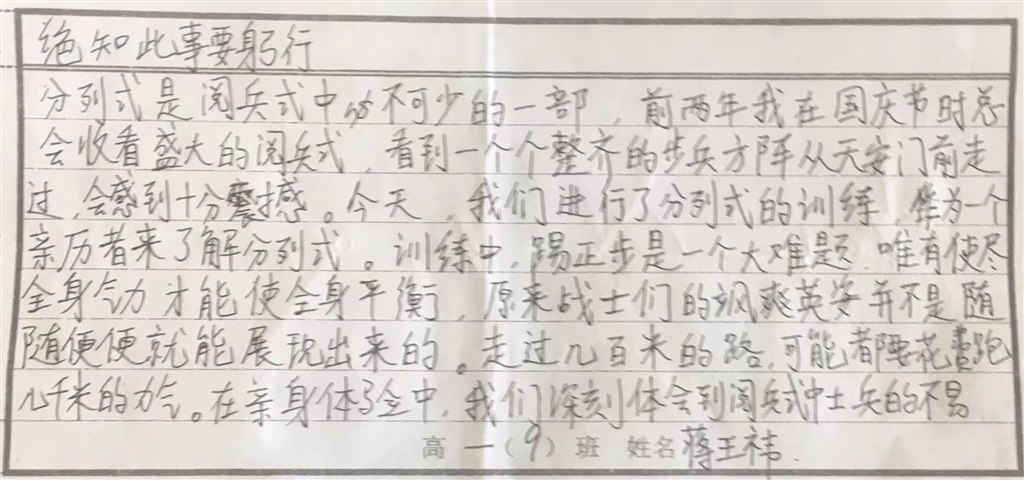 绝知此事要躬行
分列式是阅兵式中必不可少的一部，前两年我在国庆节时总
会收看盛大的阅兵式，看到一个个整齐的步兵方阵从天安门前走
过，会感到十分震撼。今天，我们进行了分列式的训练，作为一个
亲历者来了解分列式。训练中，踢正步是一个大难题，唯有使尽
全身气力才能使全身平衡，原来战士们的飒爽英姿并不是随
随便便就能展现出来的。走过几百米的路，可能都要花费跑
几千米的力气。在亲身体会中，我们深刻体会到阅兵式中士兵的不易
高一（9）班 姓名 蒋王祎.